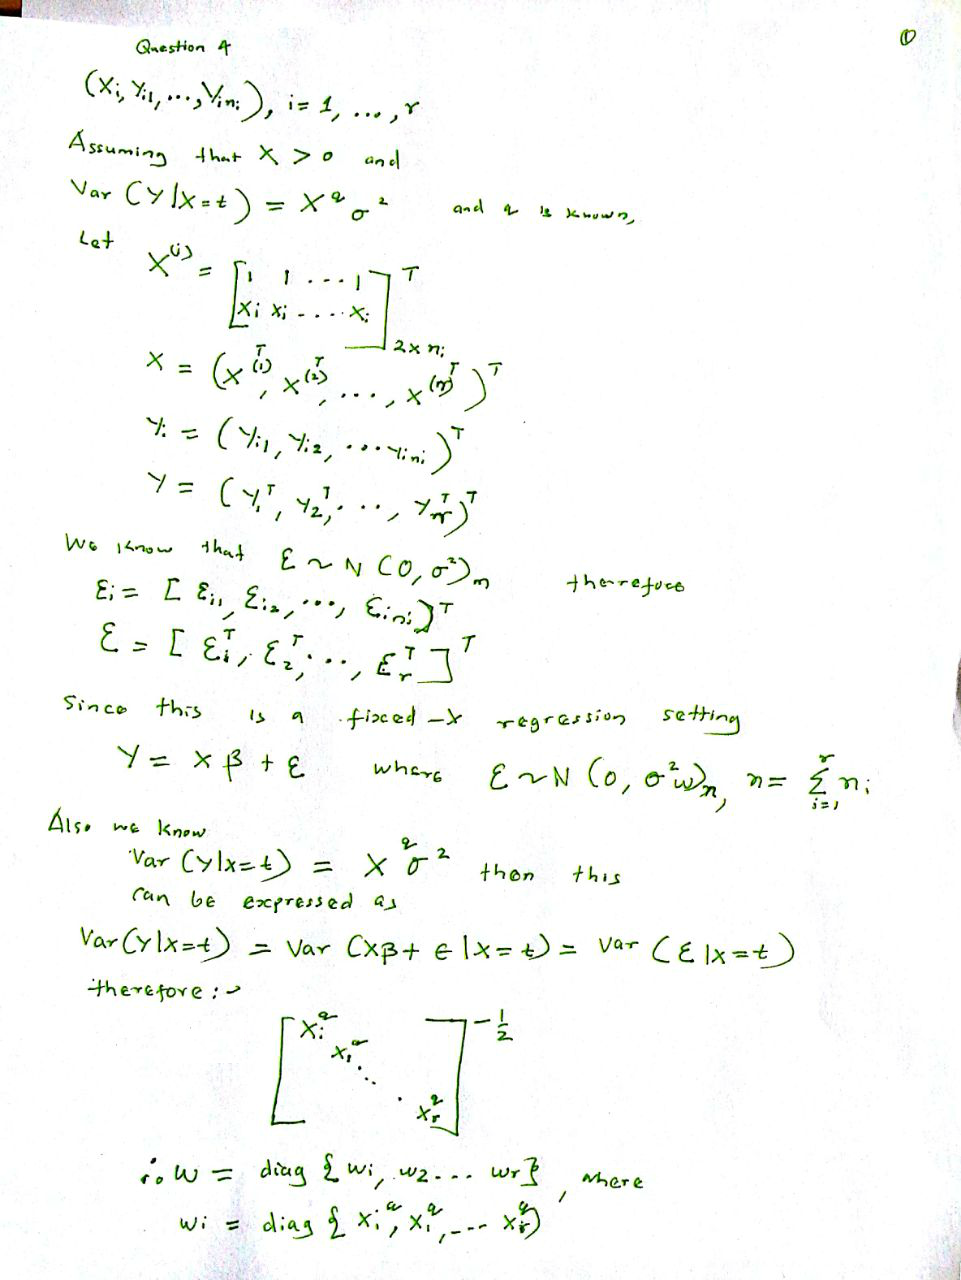 ①
Question 4
(Xi, Yi1, ..., Yini), i = 1, ..., r
Assuming that X > 0 and
Var (Y|X=t) = X^q σ^2 and q is known,
Let
X^(i) = [1 1 ... 1
Xi Xi .... Xi]^T 2×ni
X = (X^(1)^T, X^(2)^T, ..., X^(n)^T)^T
Yi = (Yi1, Yi2, ... Yini)^T
Y = (Y1^T, Y2^T, ..., Yr^T)^T
We know that ε ~ N (0, σ^2)n therefore
εi = [εi1, εi2, ..., εini]^T
ε = [ε1^T, ε2^T, ..., εr^T]^T
Since this is a fixed-X regression setting
Y = Xβ + ε where ε ~ N (0, σ^2 w)n, n = Σ_{i=1}^r ni
Also we know
Var (Y|X=t) = X^q σ^2 then this
can be expressed as
Var (Y|X=t) = Var (Xβ + ε|X=t) = Var (ε|X=t)
therefore :→
[Xi^q
X1^q
⋱
Xr^q]^-1/2
∴ W = diag {wi, w2 ... wr}, where
wi = diag {Xi^q, Xi^q, ... Xr^q}